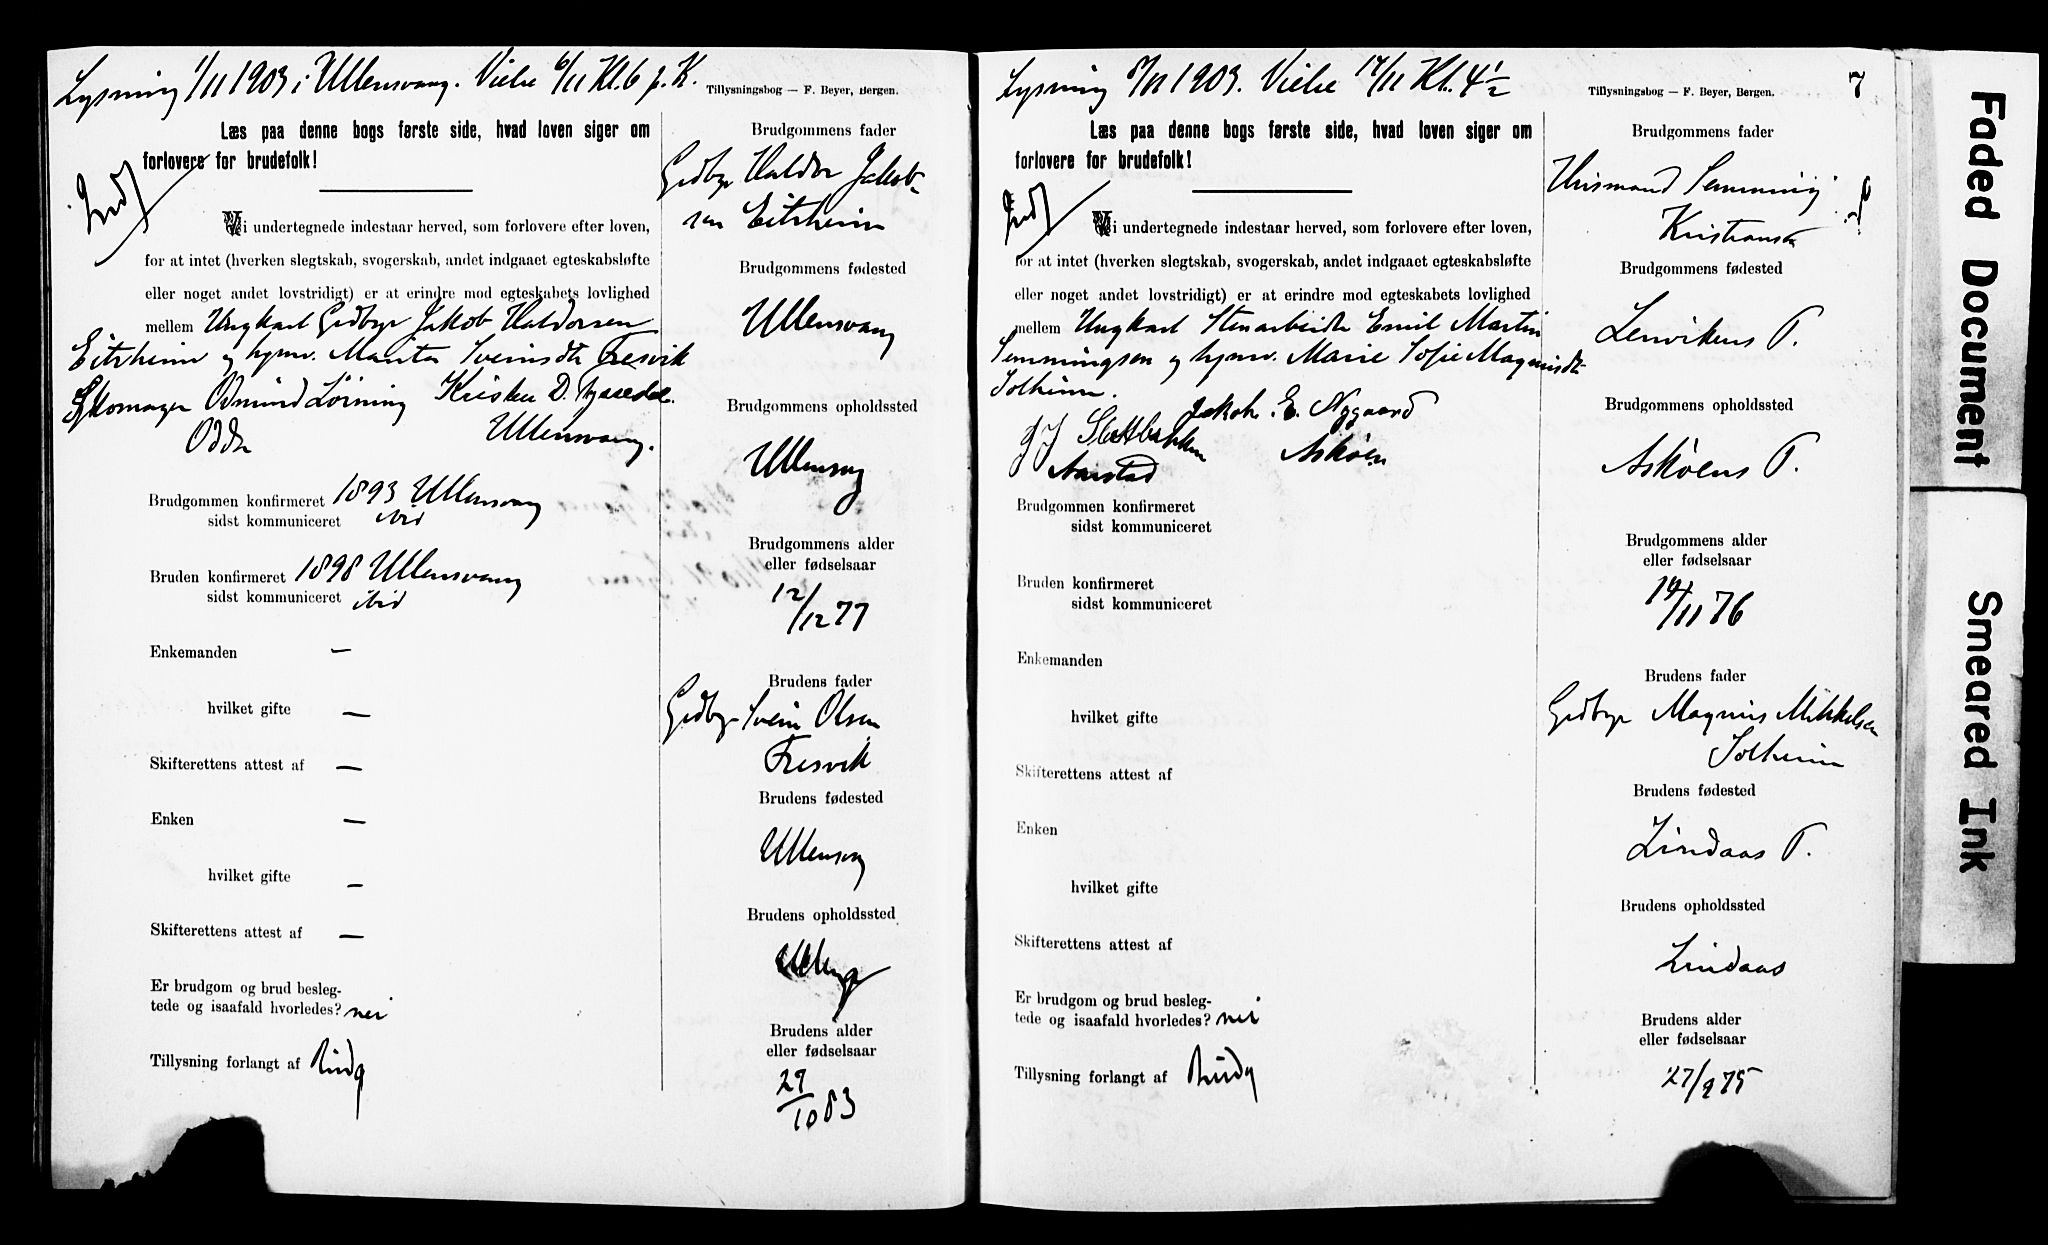 Lysning 1/11 1903 i Ullensvang. Vielse 6/11 Kl. 6 f. K.
Tillysningsbog — F. Beyer, Bergen.
Læs paa denne bogs første side, hvad loven siger om
forlovere for brudefolk!
Indf
Vi undertegnede indestaar herved, som forlovere efter loven,
for at intet (hverken slegtskab, svogerskab, andet indgaaet egteskabsløfte
eller noget andet lovstridigt) er at erindre mod egteskabets lovlighed
mellem Ungkarl Grdbr Jakob Haldorsen
Eitrheim og pigen. Marita Sveinsdtr Fresvik
Skomager Odmund Lørning Kristen D. Tyssedal.
Odda Ullensvang.
Brudgommen konfirmeret 1893 Ullensvang
sidst kommuniceret ibid
Bruden konfirmeret 1898 Ullensvang
sidst kommuniceret ibid
Enkemanden —
hvilket gifte —
Skifterettens attest af —
Enken —
hvilket gifte —
Skifterettens attest af —
Er brudgom og brud besleg-
tede og isaafald hvorledes? nei
Tillysning forlangt af Brudg
Brudgommens fader
Grdbr Haldor Jakob-
sen Eitrheim
Brudgommens fødested
Ullensvang
Brudgommens opholdssted
Ullensvg
Brudgommens alder
eller fødselsaar
12/12 77
Brudens fader
Grdbr Svein Olsen
Fresvik
Brudens fødested
Ullensvg
Brudens opholdssted
Ullensvg
Brudens alder
eller fødselsaar
29/10 83
Lysning 8/11 1903. Vielse 17/11 Kl. 4½
Tillysningsbog — F. Beyer, Bergen.
7
Læs paa denne bogs første side, hvad loven siger om
forlovere for brudefolk!
Indf
Vi undertegnede indestaar herved, som forlovere efter loven,
for at intet (hverken slegtskab, svogerskab, andet indgaaet egteskabsløfte
eller noget andet lovstridigt) er at erindre mod egteskabets lovlighed
mellem Ungkarl Stenarbeider Emil Martin
Semmingsen og pigen. Marie Sofie Magnusdtr
Solheim.
J J Slettebakken Jakob. E. Nygaard
Aarstad Askøen
Brudgommen konfirmeret
sidst kommuniceret
Bruden konfirmeret
sidst kommuniceret
Enkemanden
hvilket gifte
Skifterettens attest af
Enken
hvilket gifte
Skifterettens attest af
Er brudgom og brud besleg-
tede og isaafald hvorledes? nei
Tillysning forlangt af Brudg
Brudgommens fader
Husmand Semming
Kristiansen
Brudgommens fødested
Lenvikens P.
Brudgommens opholdssted
Askøens P.
Brudgommens alder
eller fødselsaar
14/11 76
Brudens fader
Grdbr Magnus Mikkelsen
Solheim
Brudens fødested
Lindaas P.
Brudens opholdssted
Lindaas
Brudens alder
eller fødselsaar
27/9 75
Faded Document
Smeared Ink